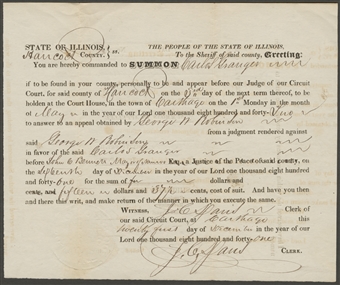 STATE OF ILLINOIS, } ss. THE PEOPLE OF THE STATE OF ILLINOIS,
Hancock COUNTY. To the Sheriff of said county, Greeting:
You are hereby commanded to SUMMON Carlos Granger
if to be found in your county, personally to be and appear before our Judge of our Circuit
Court, for said county of Hancock on the day of the next term thereof, to be
holden at the Court House, in the town of Carthage on the 1st Monday in the month
of May in the year of our Lord one thousand eight hundred and forty-two
to answer to an appeal obtained by George W
from a judgment rendered against
said George W
in favor of the said Carlos Granger
before John C Esq. a Justice of the Peace of said county, on
the day of in the year of our Lord one thousand eight hundred
and forty-one for the sum of dollars and
cents, and fifteen dollars and 37½ cents, cost of suit. And have you then
and there this writ, and make return of the manner in which you execute the same.
WITNESS, J. C. Davis Clerk of
our said Circuit Court, at Carthage this
twenty first day of December in the year of our
Lord one thousand eight hundred and forty-one
J. C. Davis CLERK.